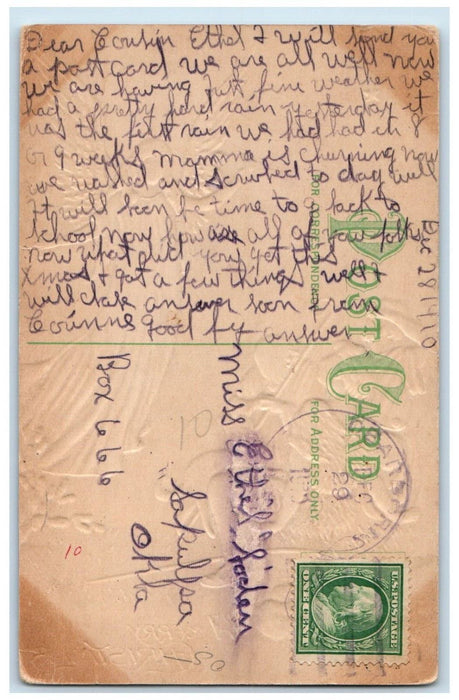 Dear Cousin Ethel I will send you
a postcard we are all well now
we are having just fine weather we
had a pretty hard rain yesterday it
was the first rain we had had in 8
or 9 weeks mamma is churning now
we washed and scrubed to day well
it will soon be time to go back to
school now how are all of you folks
now what did you get for
Xmas I got a few things well I
will close answer soon from
Corinne Good by answer
Dec 28 1910
POST CARD
FOR CORRESPONDENCE
FOR ADDRESS ONLY
Miss Ethel Soden
Box 666
Sapulpa
Okla
DEC
29
U.S. POSTAGE
ONE CENT
10